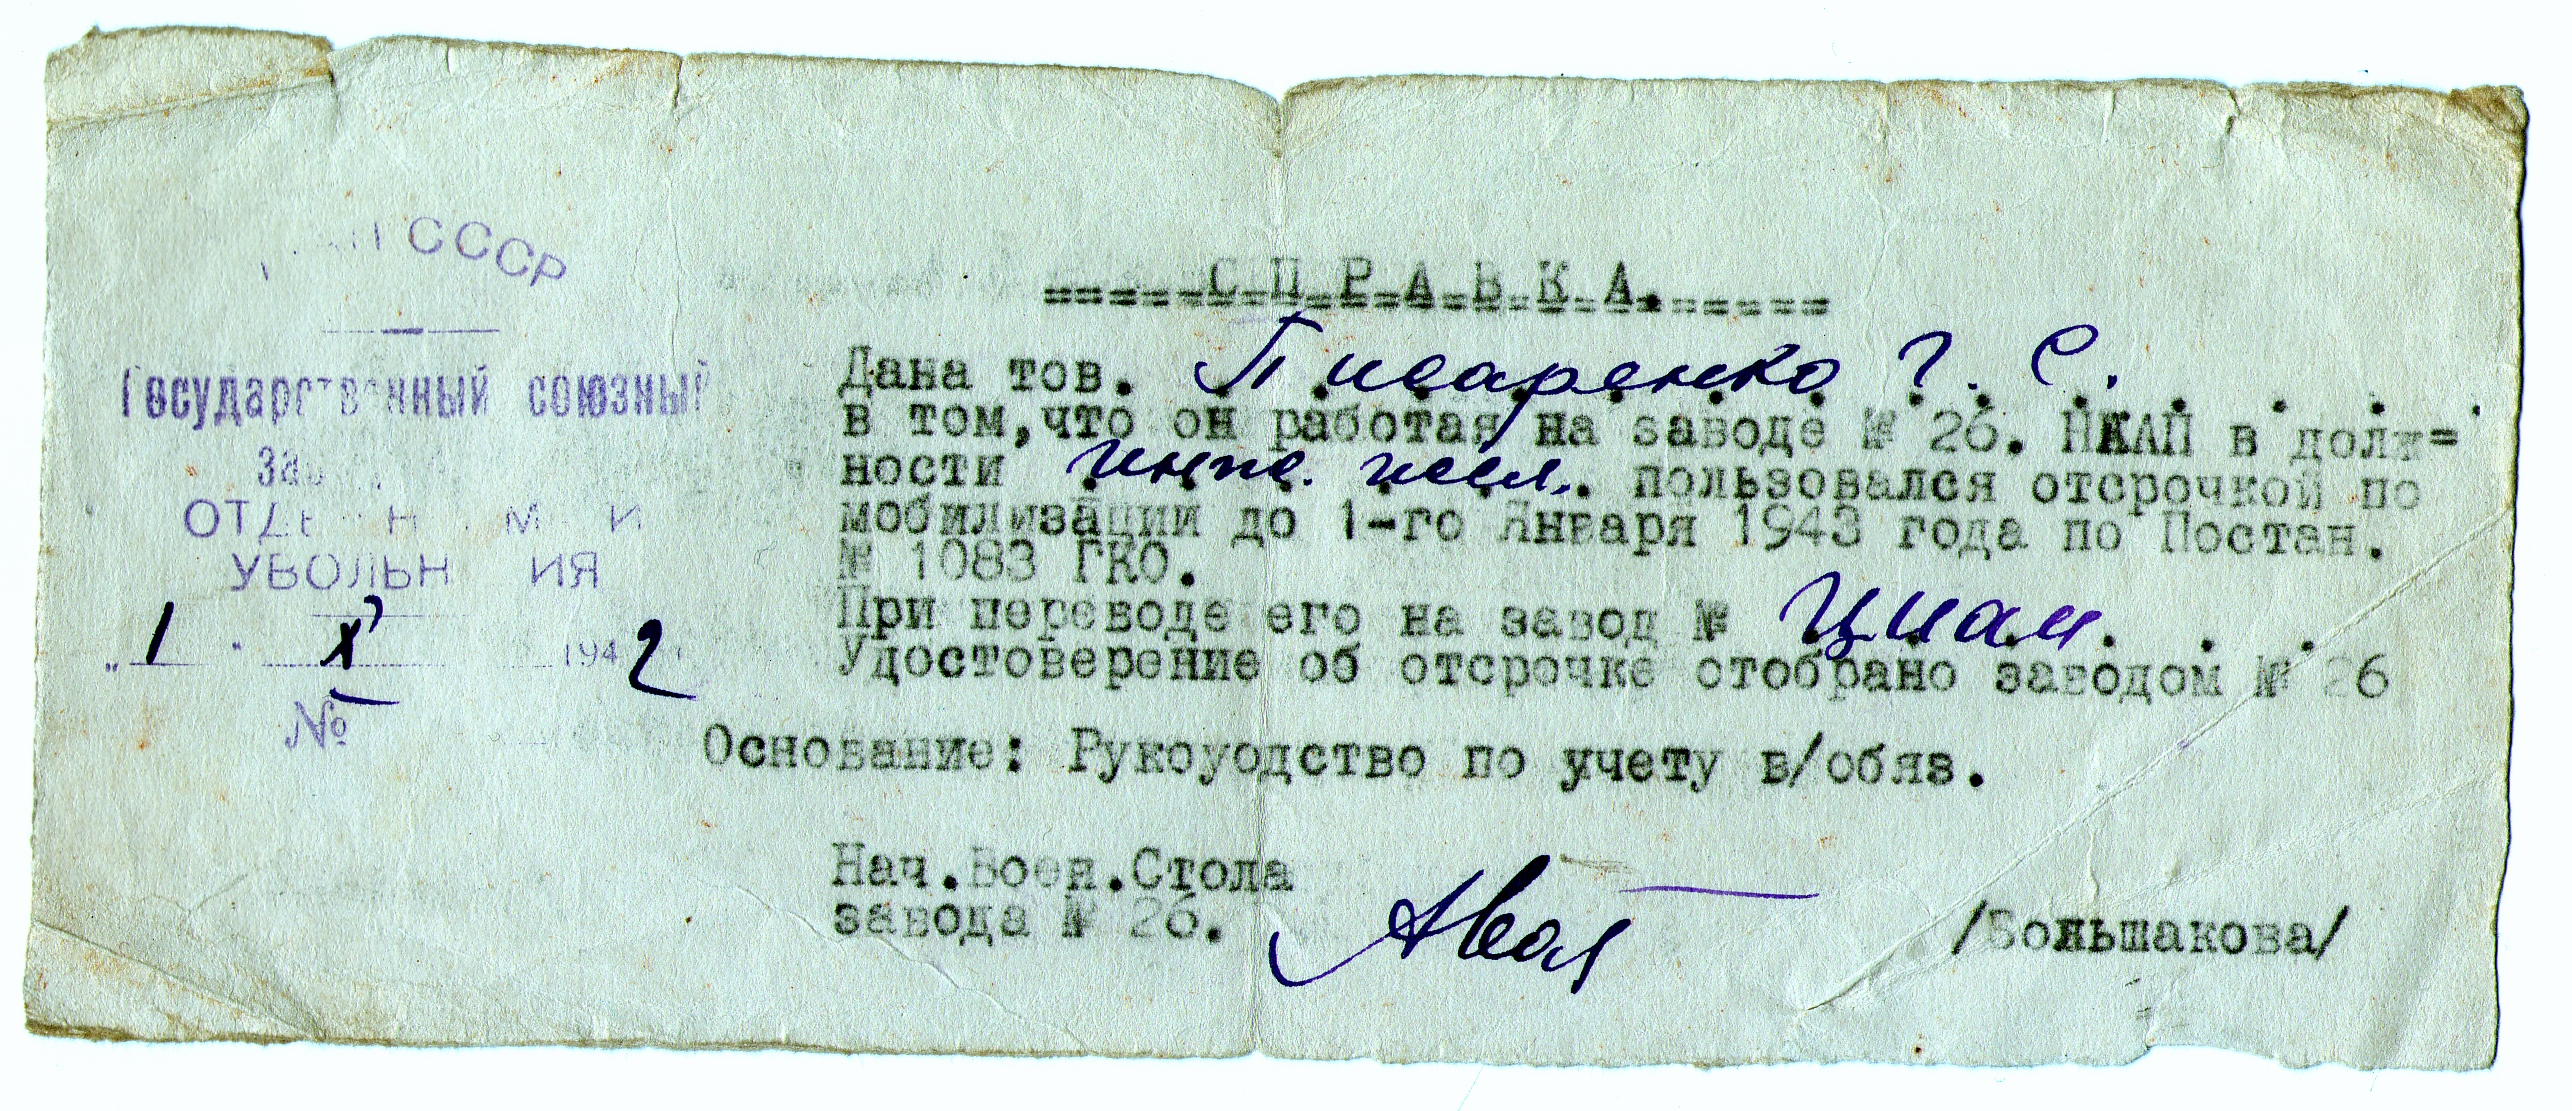 СССР
Государственный союзный
1 X 1942
№
СПРАВКА.
Дана тов. Писаренко Г. С.
в том, что он работая на заводе № 26. НКАП в долж=
ности инж. иссл. пользовался отсрочкой по
мобилизации до 1-го Января 1943 года по Постан.
№ 1083 ГКО.
При переводе его на завод № ЦИАМ
Удостоверение об отсрочке отобрано заводом № 26
Основание: Рукоуодство по учету в/обяз.
Нач.Воен.Стола
завода № 26.
/Большакова/